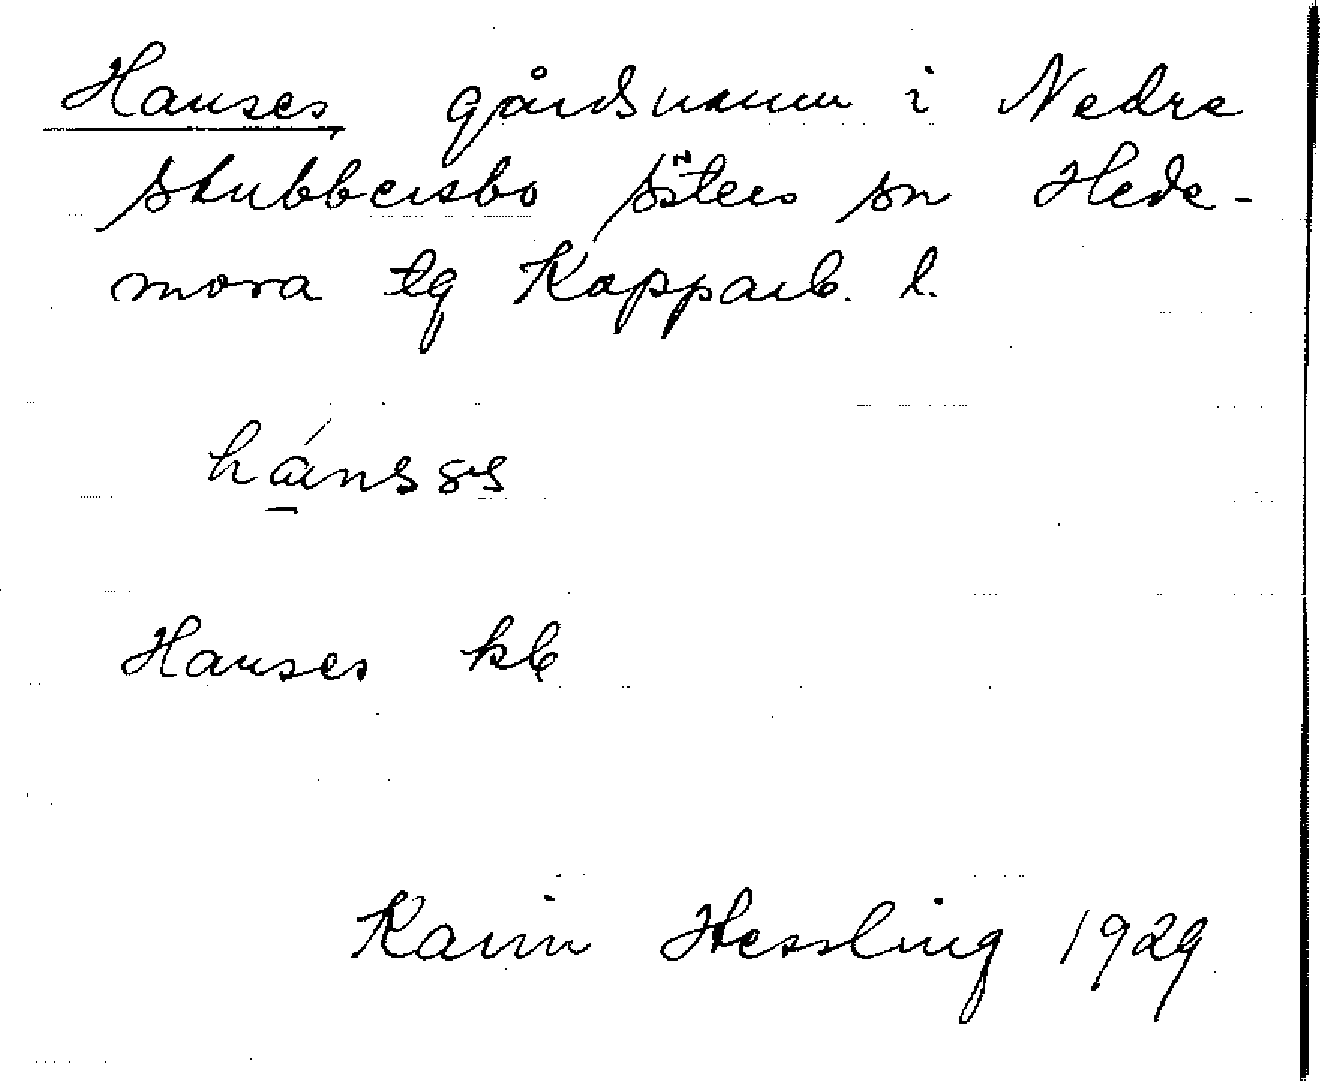 Hanses gårdsnamn i Nedre
Stubbersbo Säters sn Hede-
mora tg Kopparb. l.
hánsəs
Hanses kb
Karin Hessling 1929